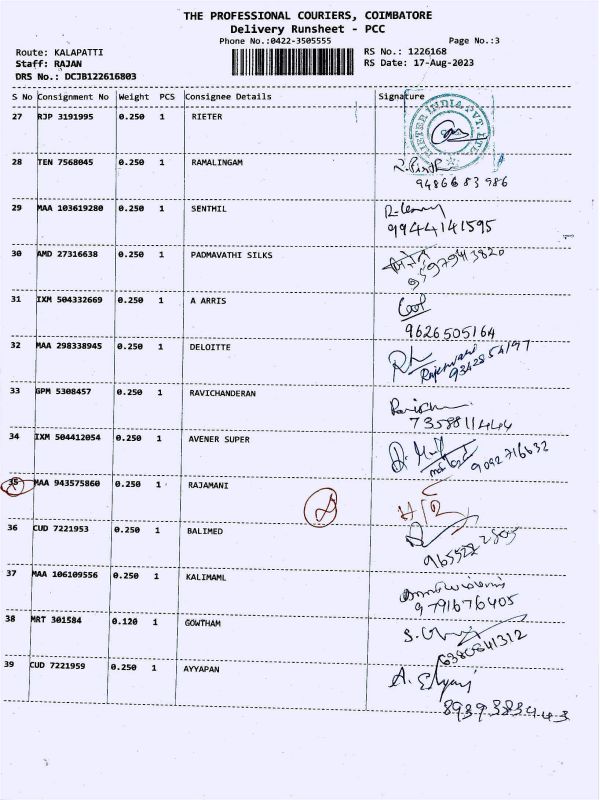 THE PROFESSIONAL COURIERS, COIMBATORE
Delivery Runsheet - PCC
Phone No.:0422-3505555 Page No.:3
Route: KALAPATTI RS No.: 1226168
Staff: RAJAN RS Date: 17-Aug-2023
DRS No.: DCJB122616803
S No Consignment No Weight PCS Consignee Details Signature
27 RJP 3191995 0.250 1 RIETER
RIETER INDIA PVT. LTD.
28 TEN 7568045 0.250 1 RAMALINGAM
9486683986
29 MAA 103619280 0.250 1 SENTHIL
9944141595
30 AMD 27316638 0.250 1 PADMAVATHI SILKS
31 IXM 504332669 0.250 1 A ARRIS
9626505164
32 MAA 298338945 0.250 1 DELOITTE
33 GPM 5308457 0.250 1 RAVICHANDERAN
7358811444
34 IXM 504412054 0.250 1 AVENER SUPER
9092716632
35 MAA 943575860 0.250 1 RAJAMANI
36 CUD 7221953 0.250 1 BALIMED
37 MAA 106109556 0.250 1 KALIMAML
9791676405
38 MRT 301584 0.120 1 GOWTHAM
6380641312
39 CUD 7221959 0.250 1 AYYAPAN
8939383443